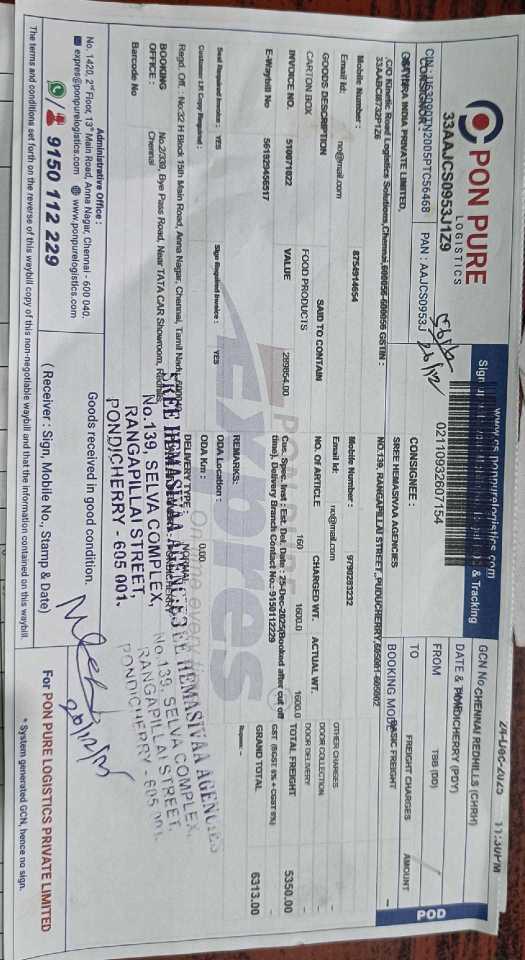 PON PURE
LOGISTICS
33AAJCS0953J1Z9
PAN : AAJCS0953J
www.es.ponpurelogistics.com
& Tracking
02110932607154
24-Dec-2025 11:30PM
GCN No CHENNAI REDHILLS (CHRH)
DATE &
PONDICHERRY (PDY)
FROM
TBB (DD)
TO
BOOKING MODE
FREIGHT CHARGES
AMOUNT
BASIC FREIGHT
--
POD
INDIA PRIVATE LIMITED,
C/O Kinetic Road Logistics Solutions,Chennai,600056-600056 GSTIN :
33AABCI8732P1Z6
Mobile Number :
8754914654
Email Id:
no@mail.com
CONSIGNEE :
SREE HEMASIVAA AGENCIES
NO.139, RAANGAPILLAI STREET,PUDUCHERRY,605001-605002
Mobile Number :
9790283232
Email Id:
no@mail.com
GOODS DESCRIPTION
SAID TO CONTAIN
NO. OF ARTICLE
CHARGED WT.
ACTUAL WT.
CARTON BOX
FOOD PRODUCTS
160
1600.0
1600.0
OTHER CHARGES
DOOR COLLECTION
DOOR DELIVERY
INVOICE NO.
510071022
VALUE
289854.00
Cus. Spec. Inst : Est. Del. Date : 25-Dec-2025(Booked after cut off
time), Delivery Branch Contact No.: 9150112229
TOTAL FREIGHT
5350.00
GST (SGST 9% + CGST 9%)
E-Waybill No
561929456517
GRAND TOTAL
6313.00
Rupees: --
Seal Required Invoice :
YES
Sign Required Invoice :
YES
REMARKS:
Customer LR Copy Required :
ODA Location :
ODA Km :
0.00
Regd. Off. : No:32 H Block 15th Main Road, Anna Nagar, Chennai, Tamil Nadu
DELIVERY TYPE :
NORMAL
BOOKING
OFFICE :
No.2/339, Bye Pass Road, Near TATA CAR Showroom, Redhills,
Chennai
Barcode No
Expres
SREE HEMASIVAA AGENCIES
No.139, SELVA COMPLEX,
RANGAPILLAI STREET,
PONDICHERRY - 605 001.
SREE HEMASIVAA AGENCIES
No.139, SELVA COMPLEX,
RANGAPILLAI STREET,
PONDICHERRY - 605 001.
Administrative Office :
No. 1420, 2nd Floor, 13th Main Road, Anna Nagar, Chennai - 600 040.
expres@ponpure.com www.ponpurelogistics.com
9150 112 229
Goods received in good condition.
26/12/25
(Receiver : Sign, Mobile No., Stamp & Date)
For PON PURE LOGISTICS PRIVATE LIMITED
* System generated GCN, hence no sign.
The terms and conditions set forth on the reverse of this waybill copy of this non-negotiable waybill and that the information contained on this waybill.